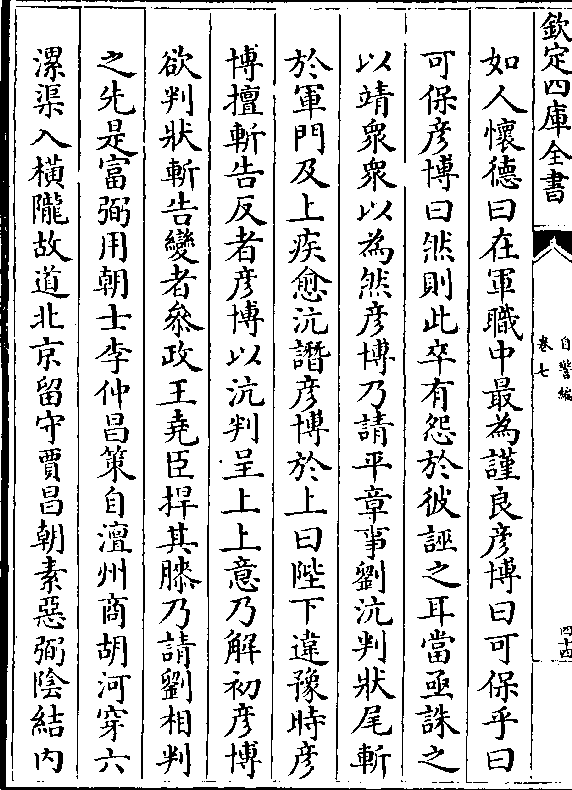 欽定四庫全書
自警編
卷七
四十四
如人懷德曰在軍職中最為謹良彦博曰可保乎曰
可保彦博曰然則此卒有怨於彼誣之耳當亟誅之
以靖衆衆以為然彦博乃請平章事劉沆判狀尾斬
於軍門及上疾愈沆譖彦博於上曰陛下違豫時彦
博擅斬告反者彦博以沆判呈上上意乃解初彦博
欲判狀斬告變者叅政王堯臣捍其膝乃請劉相判
之先是富弼用朝士李仲昌策自澶州商胡河穿六
漯渠入横隴故道北京留守賈昌朝素惡弼陰結内